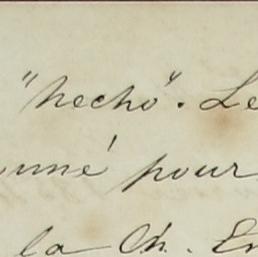 "hecho". Le
unné pour
la Ch. En